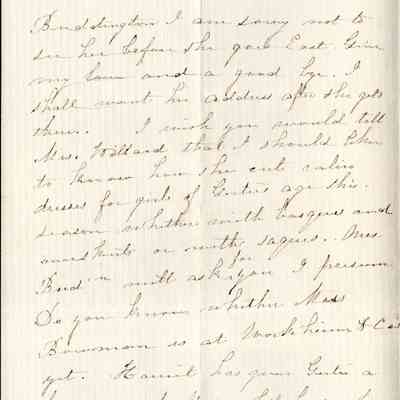 Buddington I am sorry not to
see her before she goes East. Give
my love and a good bye. I
shall want her address after she gets
there. I wish you would tell
Mrs. Willard that I should like
to know how she cuts
dresses for girls of Gertie's age this
season whether with basques and
overskirts or with sacques. Mrs
Bud'n will ask for you I presume
Do you know whether Miss
Bowman is at & Co's
yet. Harriet has given Gertie a